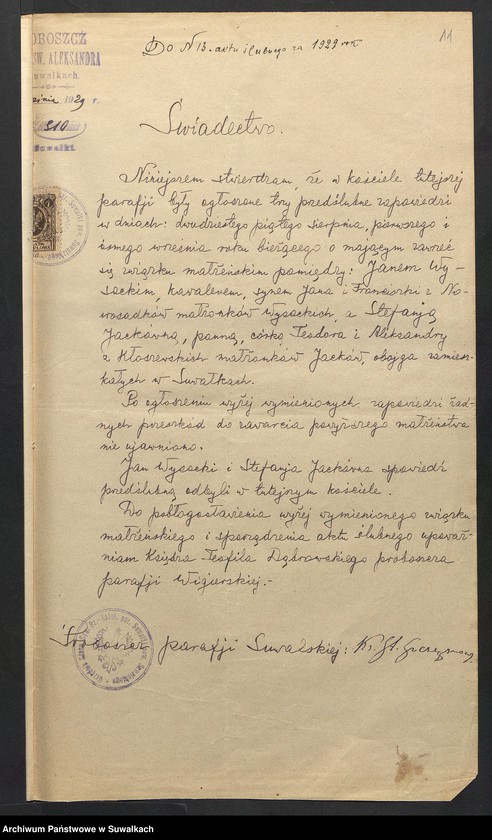 Do N 13. aktu ślubnego za 1929 rok
11
PROBOSZCZ
ŚW. ALEKSANDRA
Suwałkach.
1929 r.
310
Suwałki.
Świadectwo.
Niniejszem stwierdzam, że w kościele tutejszej
parafji były ogłoszone trzy przedślubne zapowiedzi
w dniach: dwudziestego piątego sierpnia, pierwszego i
ósmego września roku bieżącego o mającym zawrzeć
się związku małżeńskim pomiędzy: Janem Wy-
sockim, kawalerem, synem Jana i Franciszki z No-
wosadków małżonków Wysockich, a Stefanją
Jackówną, panną, córką Teodora i Aleksandry
z Kłoszewskich małżonków Jacków, obojga zamiesz-
kałych w Suwałkach.
Po ogłoszeniu wyżej wymienionych zapowiedzi żad-
nych przeszkód do zawarcia powyższego małżeństwa
nie ujawniano.
Jan Wysocki i Stefanja Jackówna spowiedź
przedślubną odbyli w tutejszym kościele.
Do pobłogosławienia wyżej wymienionego związku
małżeńskiego i sporządzenia aktu ślubnego upoważ-
niam Księdza Teofila Dąbrowskiego proboszcza
parafji Wigierskiej.-
Proboszcz parafji Suwalskiej: Ks. St.
Archiwum Państwowe w Suwałkach